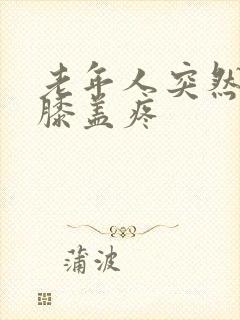 老年人突然
膝盖疼
蒲波